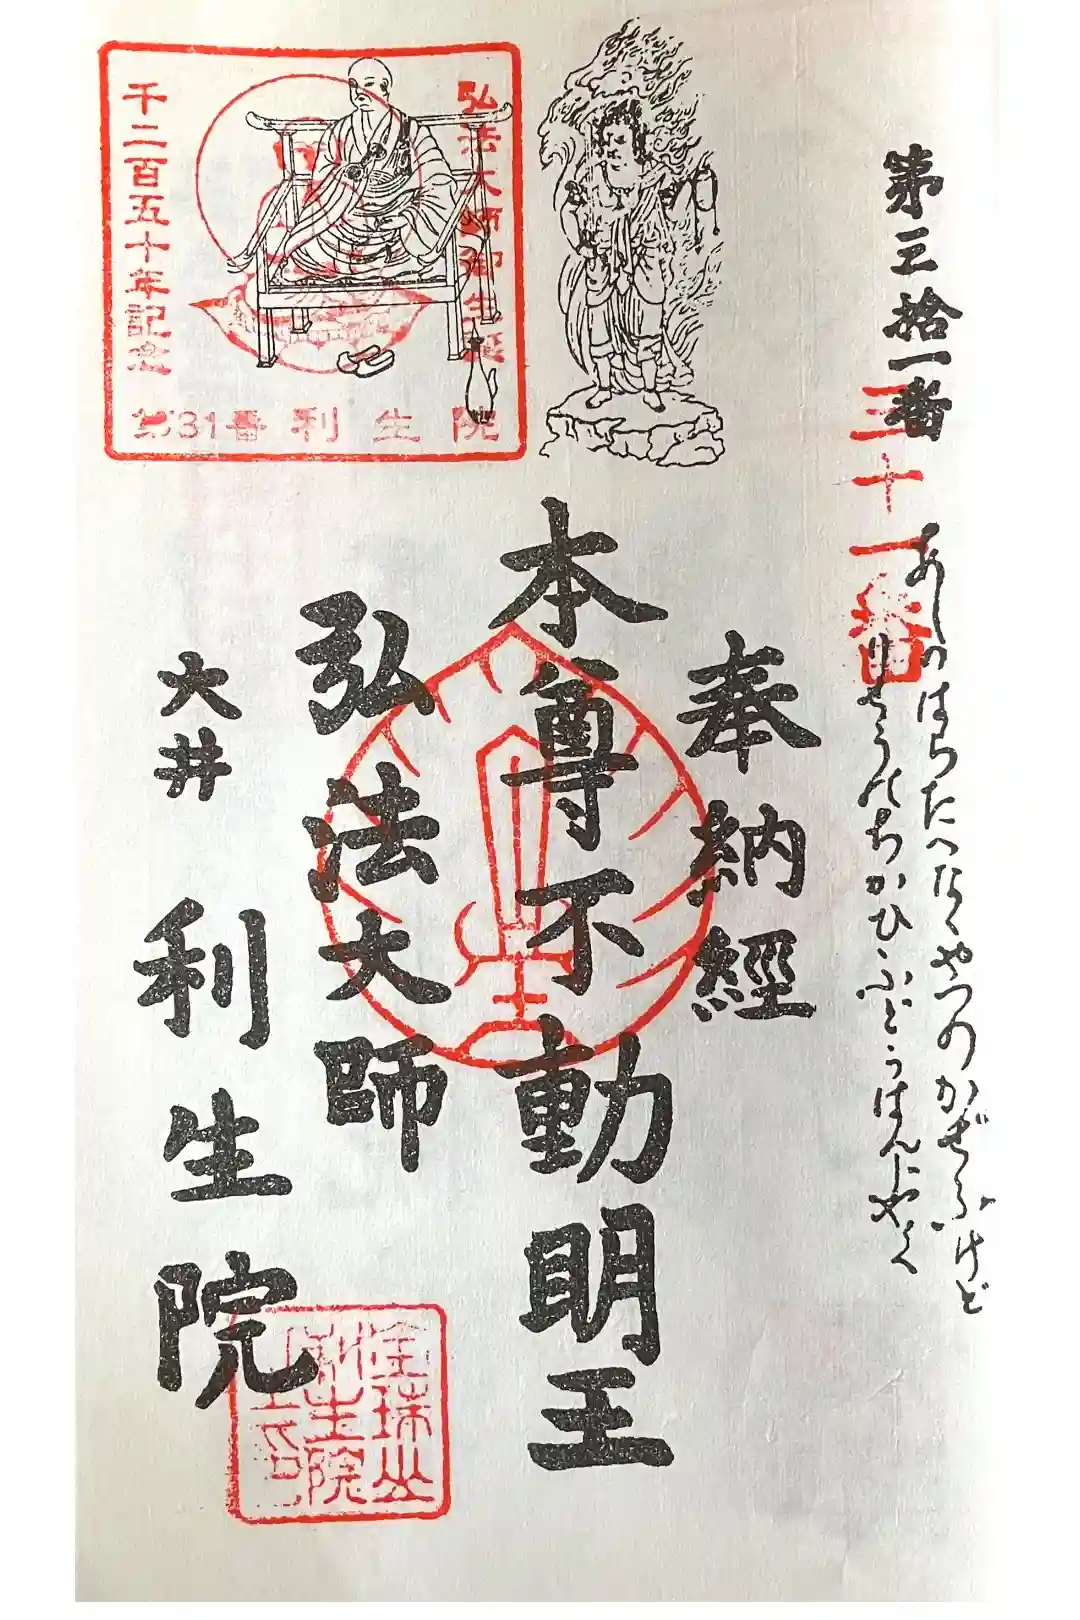 第三拾一番
三十一番
あしのはらたへなくやつのかぜふけど
りせうのちかひふどうはんじやく
奉納経
本尊不動明王
弘法大師
大井 利生院
弘法大師御生誕
千二百五十年記念
第31番 利生院